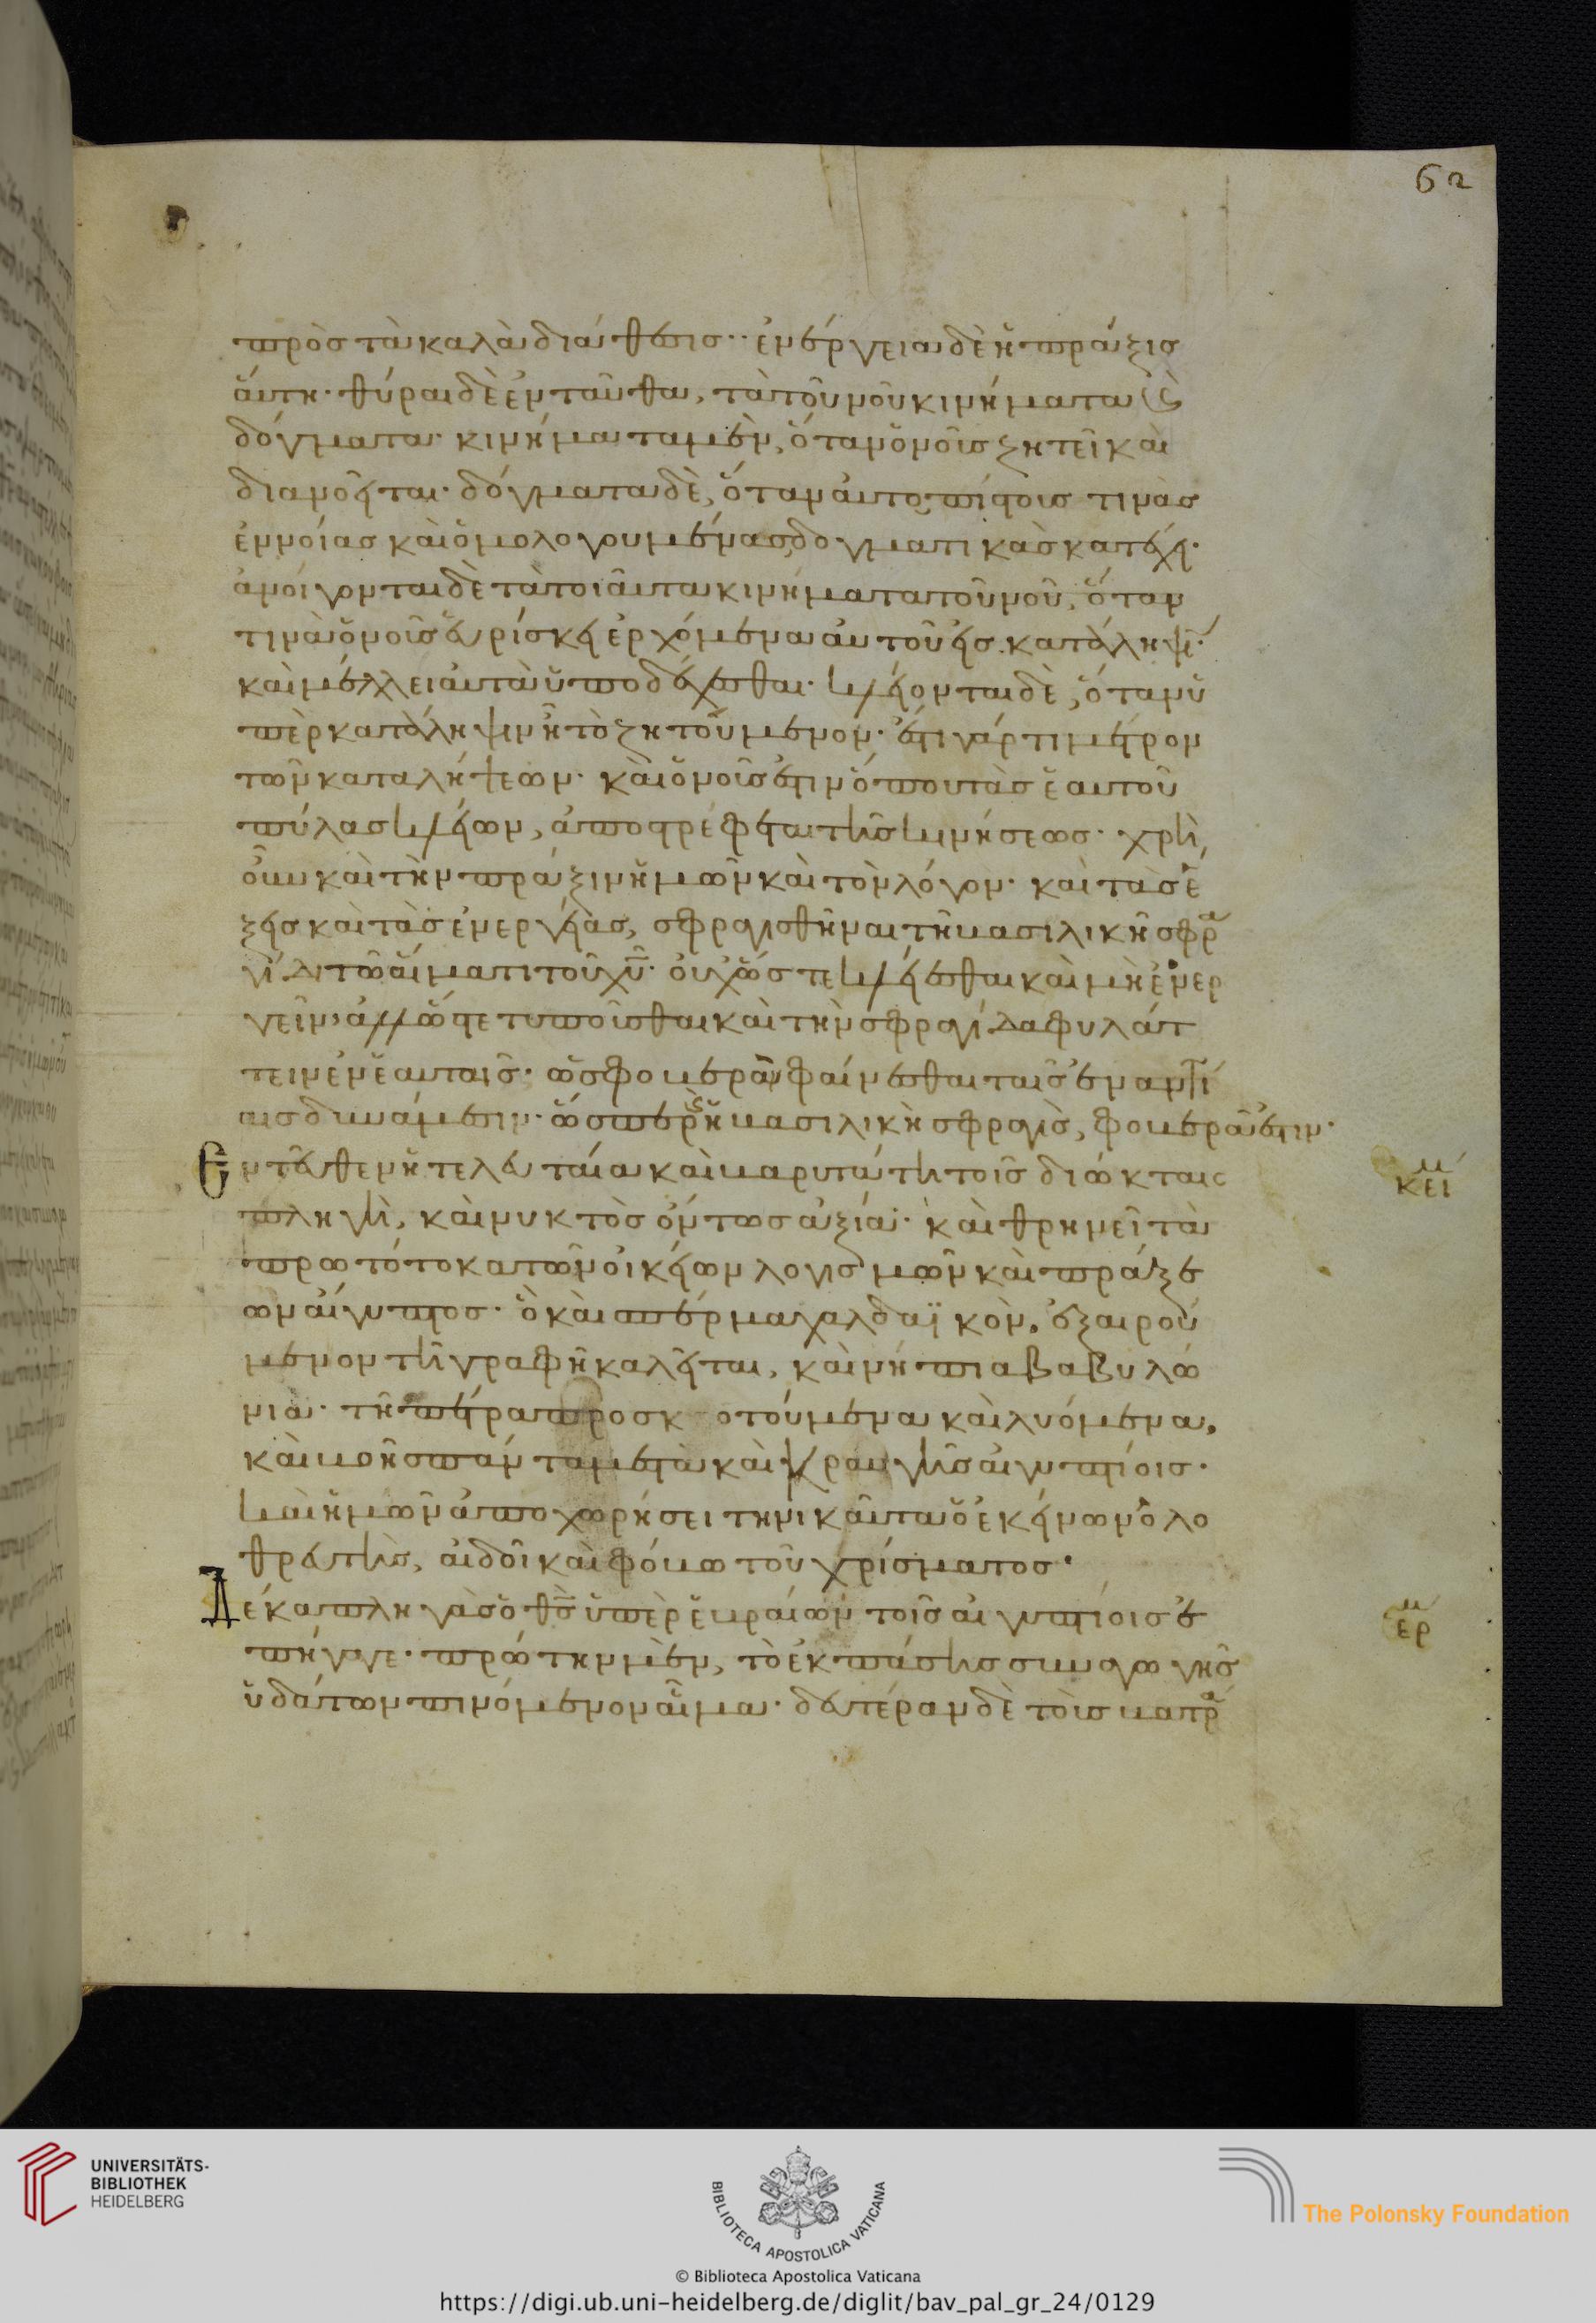 62
πρὸς τὰ καλὰ διάθεσις· ἐνέργεια δὲ ἡ πράξις
ἄυτη· θύραι δὲ ἐνταῦθα, τὰ τοῦ νοῦ κινήματα καὶ
δόγματα· κινήματα μὲν, ὅταν ὁ νοῦς ζητεῖ καὶ
διανοεῖται· δόγματα δὲ, ὅταν ἀυτο πίστοις τινὰς
ἐννοίας καὶ ὁμολογουμένας δογματικὰς κατέχει·
ἀνοίγονται δὲ τὰ τοιαῦτα κινήματα τοῦ νοῦ, ὅταν
τινὰ ὁ νοῦς ἑυρίσκει ἐρχόμενα ἀυτοῦ εἰς κατάληψιν·
καὶ μέλλει ἀυτὰ ὑποδέχεσθαι· κλείονται δὲ, ὅταν ὑ
πὲρ κατάληψιν ἦ τὸ ζητούμενον· ἔστι γάρ τι μέτρον
τῶν καταλήψεων· καὶ ὁ νοῦς ἐστιν ὅπου τὰς ἑαυτοῦ
πύλας κλείων, ἀποτρέφεται τῆς κινήσεως· χρὴ
οὖν καὶ τὴν πράξιν ἡμῶν καὶ τὸν λόγον· καὶ τὰς ἕ
ξεις καὶ τὰς ἐνεργείας, σφραγισθῆναι τῆ βασιλικῆ σφρα
γίδι τῶ αἵματι τοῦ χυ· οὐχ ὥστε κλείεσθαι καὶ μὴ ἐνερ
γεῖν, ἀλλ' ὥστε τυποῦσθαι καὶ τὴν σφραγίδα φυλάτ
τειν ἐν ἑαυταῖς· ὡς φοβερὰν φαίνεσθαι ταῖς ἐναντί
αις δυνάμεσιν· ὥσπερ ἡ βασιλικὴ σφραγὶς, φοβερά ἐστιν·
Εντεῦθεν ἡ τελευταία καὶ βαρυτάτη τοῖς διώκταις
πληγὴ, καὶ νυκτὸς ὄντως ἀξία· καὶ θρηνεῖ τὰ
πρωτότοκα τῶν οἰκείων λογισμῶν καὶ πράξε
ων αἴγυπτος· ὃ καὶ σπέρμα χαλδαϊκὸν, ἐξαιρού
μενον τῆ γραφῆ καλεῖται, καὶ νήπια βαβυλώ
νια· τῆ πέτρα προσκροτούμενα καὶ λυόμενα,
καὶ βοῆς πάντα μεστὰ καὶ κραυγῆς αἰγυπτίοις·
κᾂν ἡμῶν ἀποχωρήσει τηνικαῦτα ὁ ἐκείνων ὀλο
θρευτὴς, αἰδοῖ καὶ φόβω τοῦ χρίσματος·
Δέκα πληγὰς ὁ θς ὑπὲρ ἑβραίων τοῖς αἰγυπτίοις ἐ
πήγαγε· πρώτην μὲν, τὸ ἐκ πάσης συναγωγῆς
ὑδάτων πινόμενον αἷμα· δευτέραν δὲ τοῖς βατρά
κει
ερ
UNIVERSITÄTS-
BIBLIOTHEK
HEIDELBERG
BIBLIOTECA APOSTOLICA VATICANA
The Polonsky Foundation
© Biblioteca Apostolica Vaticana
https://digi.ub.uni-heidelberg.de/diglit/bav_pal_gr_24/0129